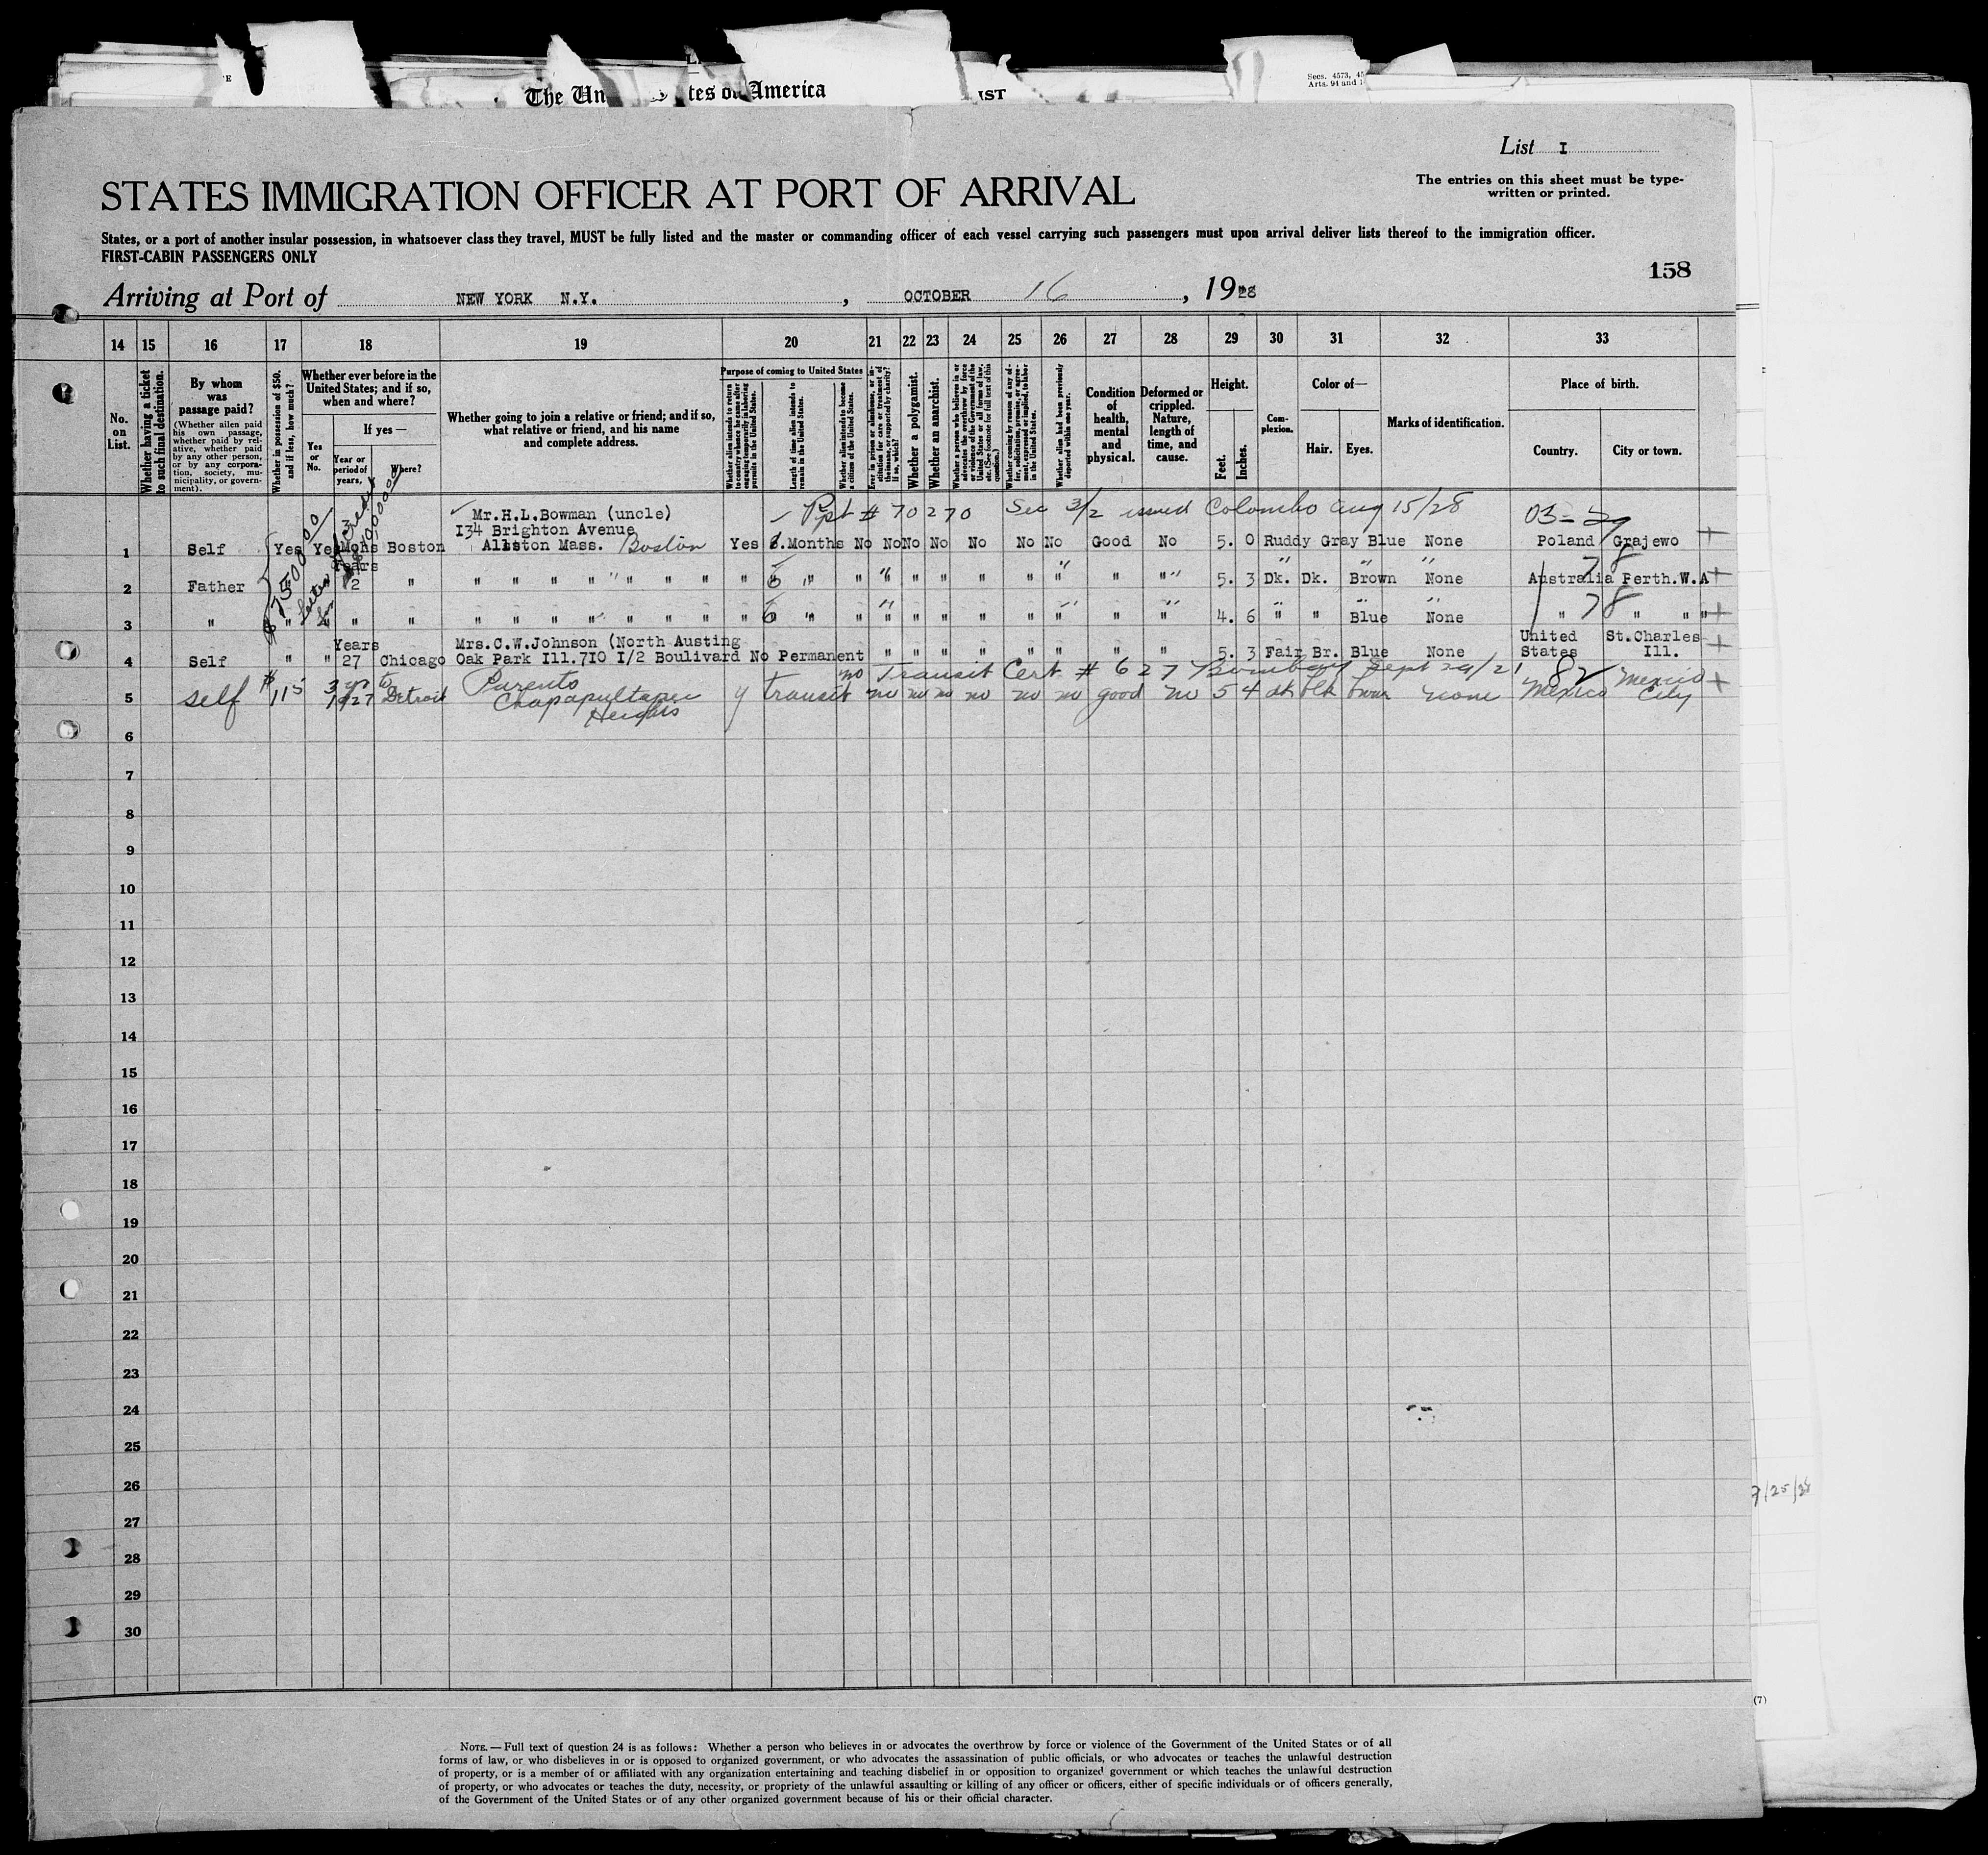 The Un tes of America
IST
Secs. 4573, 45
Arts. 94 and 1
List I
STATES IMMIGRATION OFFICER AT PORT OF ARRIVAL
The entries on this sheet must be type-
written or printed.
States, or a port of another insular possession, in whatsoever class they travel, MUST be fully listed and the master or commanding officer of each vessel carrying such passengers must upon arrival deliver lists thereof to the immigration officer.
FIRST-CABIN PASSENGERS ONLY
158
Arriving at Port of NEW YORK N.Y. , OCTOBER 16 , 1928
14 15 16 17 18 19 20 21 22 23 24 25 26 27 28 29 30 31 32 33
No. on List.
Whether having a ticket to such final destination.
By whom was passage paid?
(Whether alien paid his own passage, whether paid by relative, whether paid by any other person, or by any corporation, society, municipality, or government).
Whether in possession of $50. and if less, how much?
Whether ever before in the United States; and if so, when and where?
Yes or No.
If yes—
Year or period of years,
Where?
Whether going to join a relative or friend; and if so, what relative or friend, and his name and complete address.
Purpose of coming to United States
Whether alien intends to return to country whence he came after engaging temporarily in laboring pursuits in the United States.
Length of time alien intends to remain in the United States.
Whether alien intends to become a citizen of the United States.
Ever in prison or almshouse, or institution for care or treatment of the insane, or supported by charity? If so, which?
Whether a polygamist.
Whether an anarchist.
Whether a person who believes in or advocates the overthrow by force or violence of the Government of the United States or all forms of law, etc. (See footnote for full text of this question.)
Whether coming by reason of any offer, solicitation, promise, or agreement, expressed or implied, to labor in the United States.
Whether alien had been previously deported within one year.
Condition of health, mental and physical.
Deformed or crippled. Nature, length of time, and cause.
Height.
Feet. Inches.
Complexion.
Color of—
Hair. Eyes.
Marks of identification.
Place of birth.
Country. City or town.
✓ Mr.H.L.Bowman (uncle) ✓ Ppt # 70270 Sec 3/2 issued Colombo Aug 15/28 03-29
134 Brighton Avenue
1 Self Yes Yes 3 Mons Boston Allston Mass. Boston Yes 6.Months No No No No No No No Good No 5. 0 Ruddy Gray Blue None Poland Grajewo +
$7500.00
78
2 Father " Years 12 " " " " " " " " " 6 " " " " " " " " " " 5. 3 Dk. Dk. Brown None Australia Perth.W.A +
78
3 " " " " " " " " " " " " " 6 " " " " " " " " " " 4. 6 " " Blue None " " " " +
4 Self " " Years 27 Chicago Mrs.C.W.Johnson (North Austing
Oak Park Ill.710 1/2 Boulivard No Permanent " " " " " " " " 5. 3 Fair Br. Blue None United States St.Charles Ill. +
no Transit Cert # 627 Bombay Sept 29/21 82
5 self $115 3 yr to 1927 Detroit Parents
Chapapultapec
Heights y transit no no no no no no good no 5 4 dk blk brown none Mexico Mexico City +
6
7
8
9
10
11
12
13
14
15
16
17
18
19
20
21
22
23
24
25
26
27
28
29
30
9/25/28
(7)
NOTE.—Full text of question 24 is as follows: Whether a person who believes in or advocates the overthrow by force or violence of the Government of the United States or of all
forms of law, or who disbelieves in or is opposed to organized government, or who advocates the assassination of public officials, or who advocates or teaches the unlawful destruction
of property, or is a member of or affiliated with any organization entertaining and teaching disbelief in or opposition to organized government or which teaches the unlawful destruction
of property, or who advocates or teaches the duty, necessity, or propriety of the unlawful assaulting or killing of any officer or officers, either of specific individuals or of officers generally,
of the Government of the United States or of any other organized government because of his or their official character.